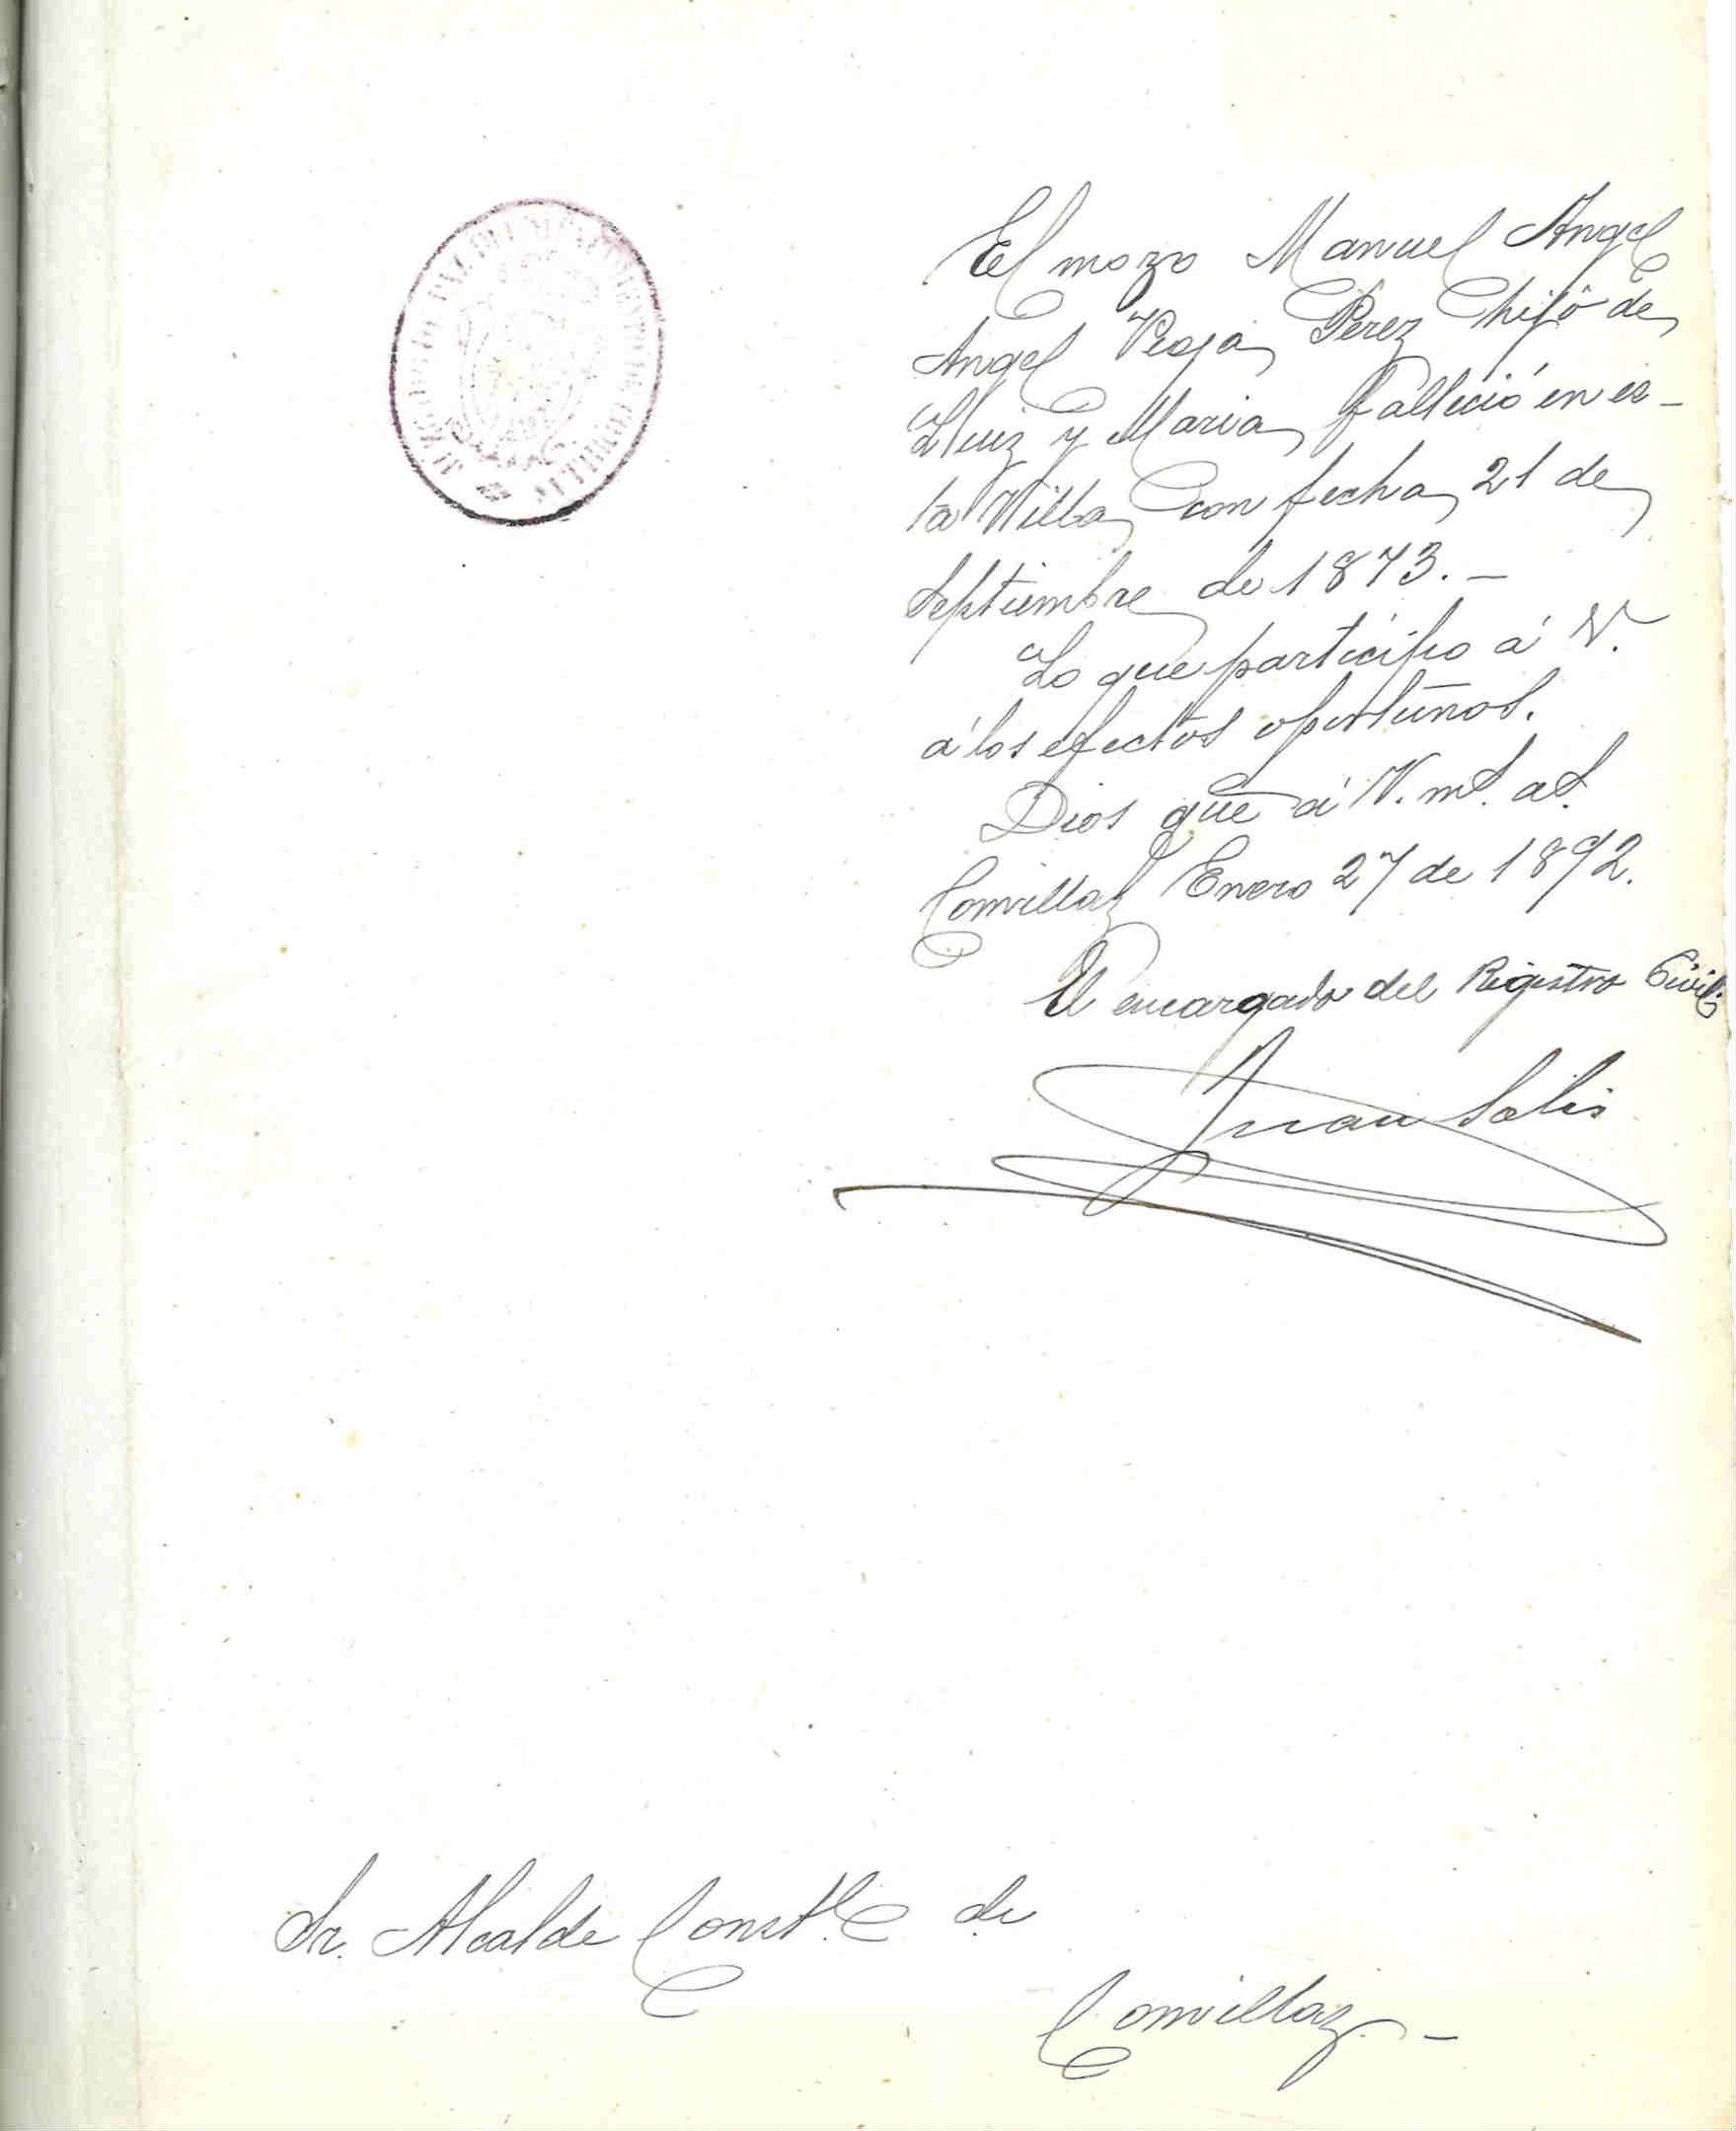 JUZGADO MUNICIPAL DEL AYUNTAMIENTO DE COMILLAS
El mozo Manuel Angel
Angel Vega Perez hijo de
Luiz y Maria, fallecio en es-
ta Villa con fecha 21 de
Septiembre de 1873.-
Lo que participo á V.
á los efectos oportunos.
Dios gue á V. ms. as.
Comillas Enero 27 de 1892.
El encargado del Registro Civil:
Juan Solis
Sr. Alcalde Constl. de
Comillas.-